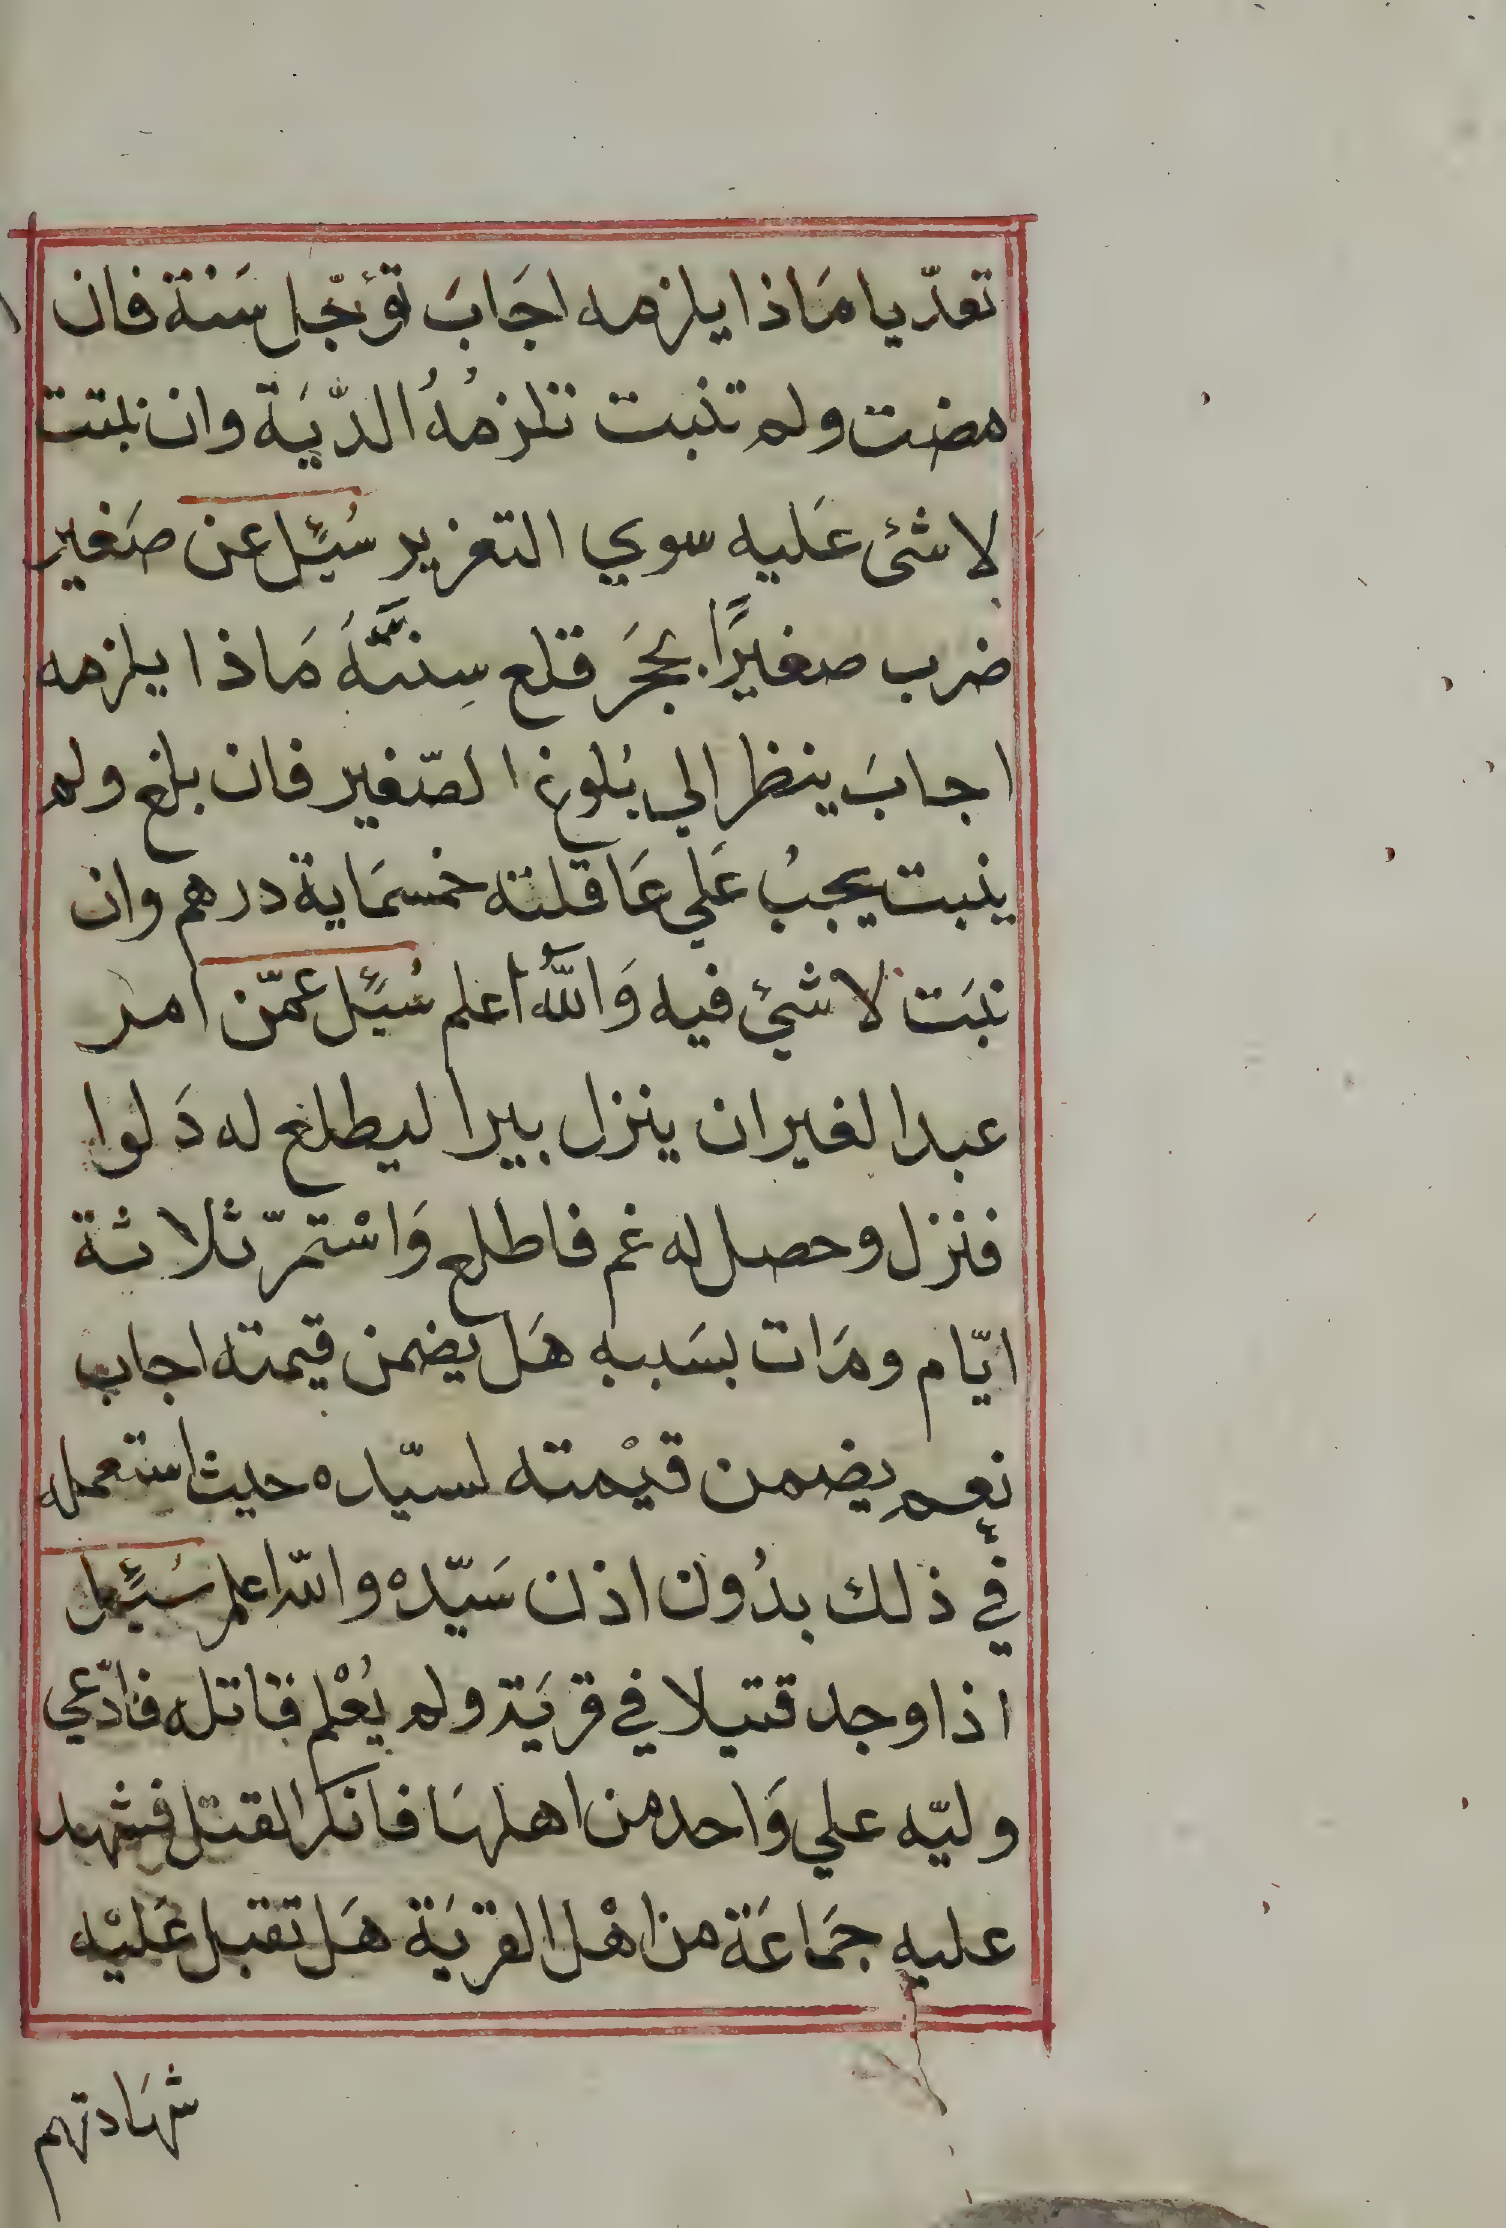 تعدّيا مَاذا يلزمه اجَابَ تؤجّل سَنة فان
مضت ولم تنبت تلزمهُ الدّيَة وان نبتت
لاشئ عَليه سوي التعزير سُئِل عن صَغير
ضرب صغيرًا بحجَر قلع سِنَّهَ مَاذا يلزمه
اجابَ ينظر الي بُلوغ الصّغير فان بلغ ولم
ينبت يجبُ عَلي عَاقلته خمسمَاية درهم وان
نبَت لاشئ فيه وَاللّه اعلم سُئِل عمّن امر
عبد الغير ان ينزل بيرا ليطلع له دَلوا
فنزل وحصل له غم فاطلع وَاسْتمرّ ثلاثة
ايّام ومَات بسَببه هَل يضمن قيمته اجاب
نعم يضمن قيْمته لسيّده حيث استعمله
في ذلك بدُون اذن سَيّده والله اعلم سُئِل
اذا وجد قتيلا في قريَة ولم يُعْلم قاتله فادّعي
وليّه علي وَاحد من اهلهَا فانكر القتل فشهد
عليه جمَاعَة من اهْل القريَة هَل تقبل عَليْه
شهَادتهم